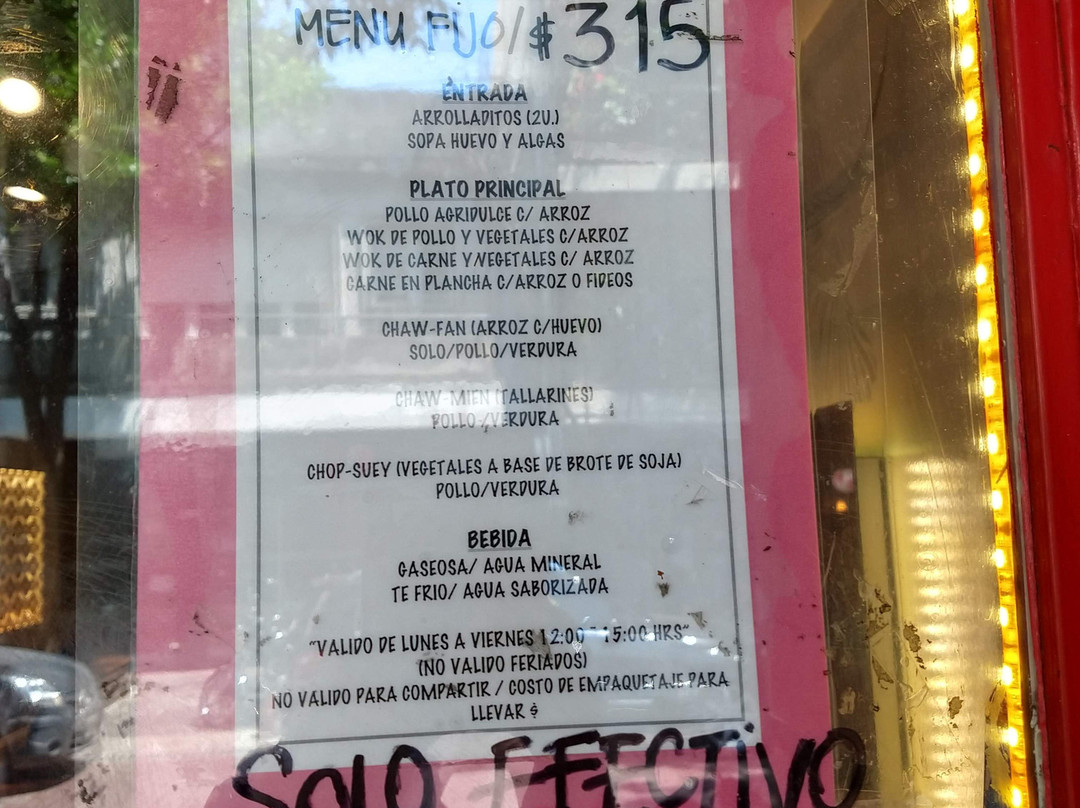 MENU FIJO/$315
ENTRADA
ARROLLADITOS (2U.)
SOPA HUEVO Y ALGAS
PLATO PRINCIPAL
POLLO AGRIDULCE C/ ARROZ
WOK DE POLLO Y VEGETALES C/ARROZ
WOK DE CARNE Y VEGETALES C/ ARROZ
CARNE EN PLANCHA C/ARROZ O FIDEOS
CHAW-FAN (ARROZ C/HUEVO)
SOLO/POLLO/VERDURA
CHAW-MIEN (TALLARINES)
POLLO /VERDURA
CHOP-SUEY (VEGETALES A BASE DE BROTE DE SOJA)
POLLO/VERDURA
BEBIDA
GASEOSA/ AGUA MINERAL
TE FRIO/ AGUA SABORIZADA
"VALIDO DE LUNES A VIERNES 12:00 - 15:00 HRS"
(NO VALIDO FERIADOS)
NO VALIDO PARA COMPARTIR / COSTO DE EMPAQUETAJE PARA
LLEVAR $
SOLO EFECTIVO